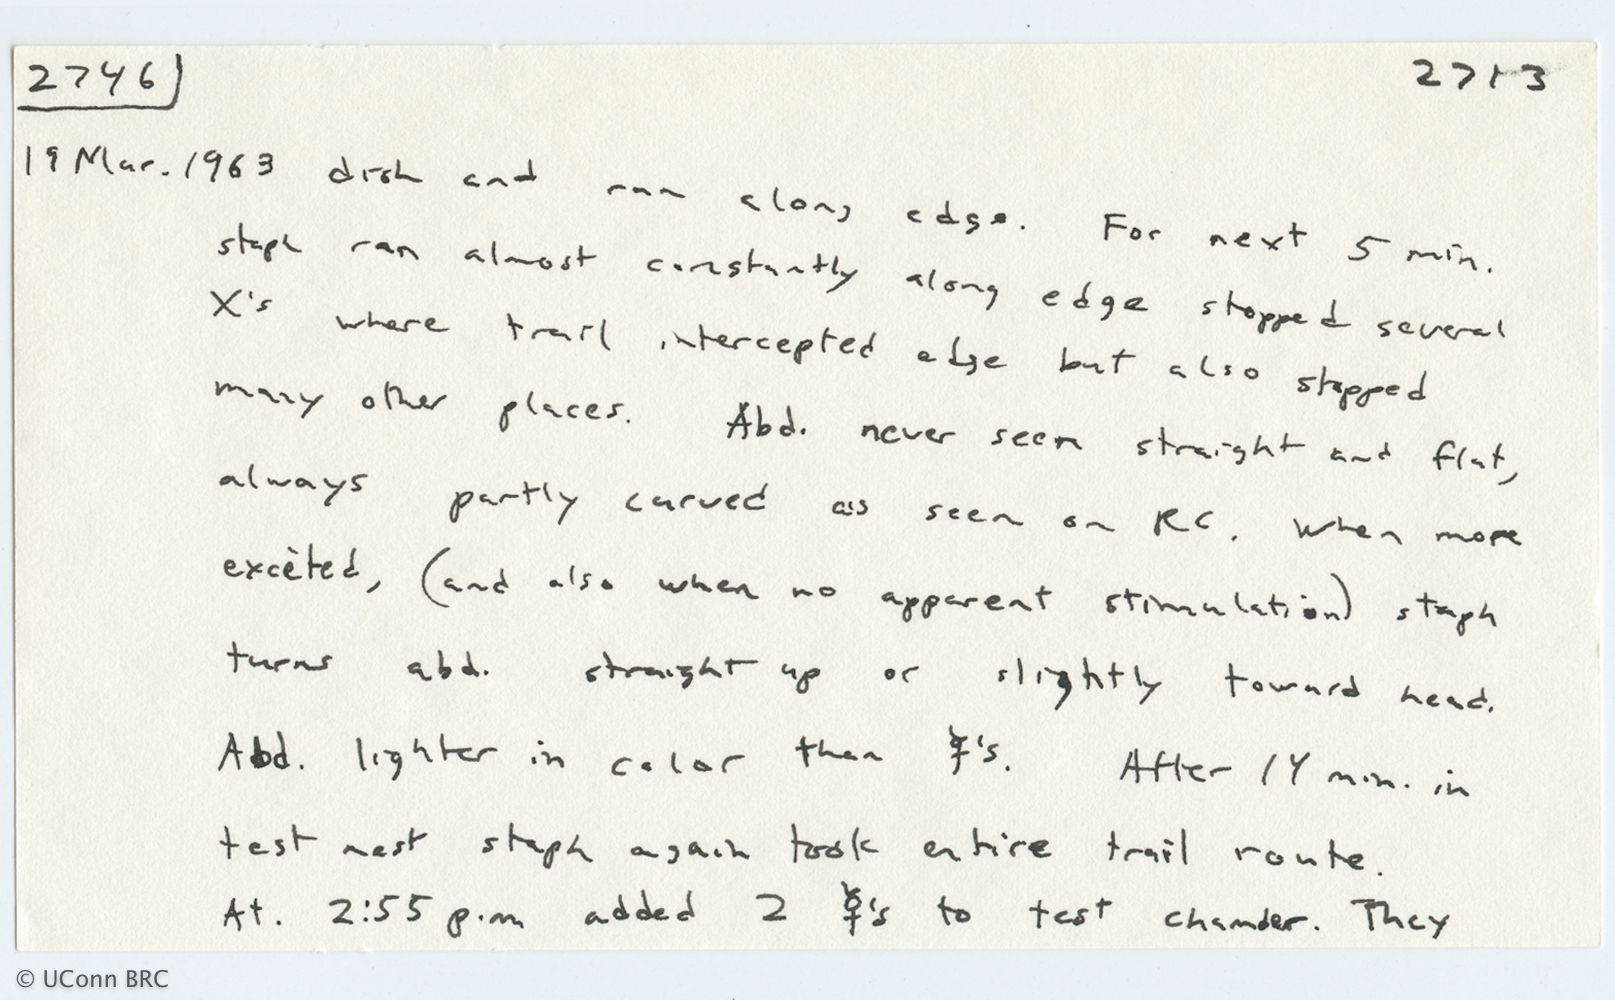 2746 2713
19 Mar. 1963 dish and ran along edge. For next 5 min.
staph ran almost constantly along edge stopped several
X's where trail intercepted edge but also stopped
many other places. Abd. never seen straight and flat,
always partly curved as seen on RC. When more
excited, (and also when no apparent stimulation) staph
turns abd. straight up or slightly toward head.
Abd. lighter in color than ☿'s. After 14 min. in
test nest staph again took entire trail route.
At. 2:55 p.m added 2 ☿'s to test chamber. They
© UConn BRC